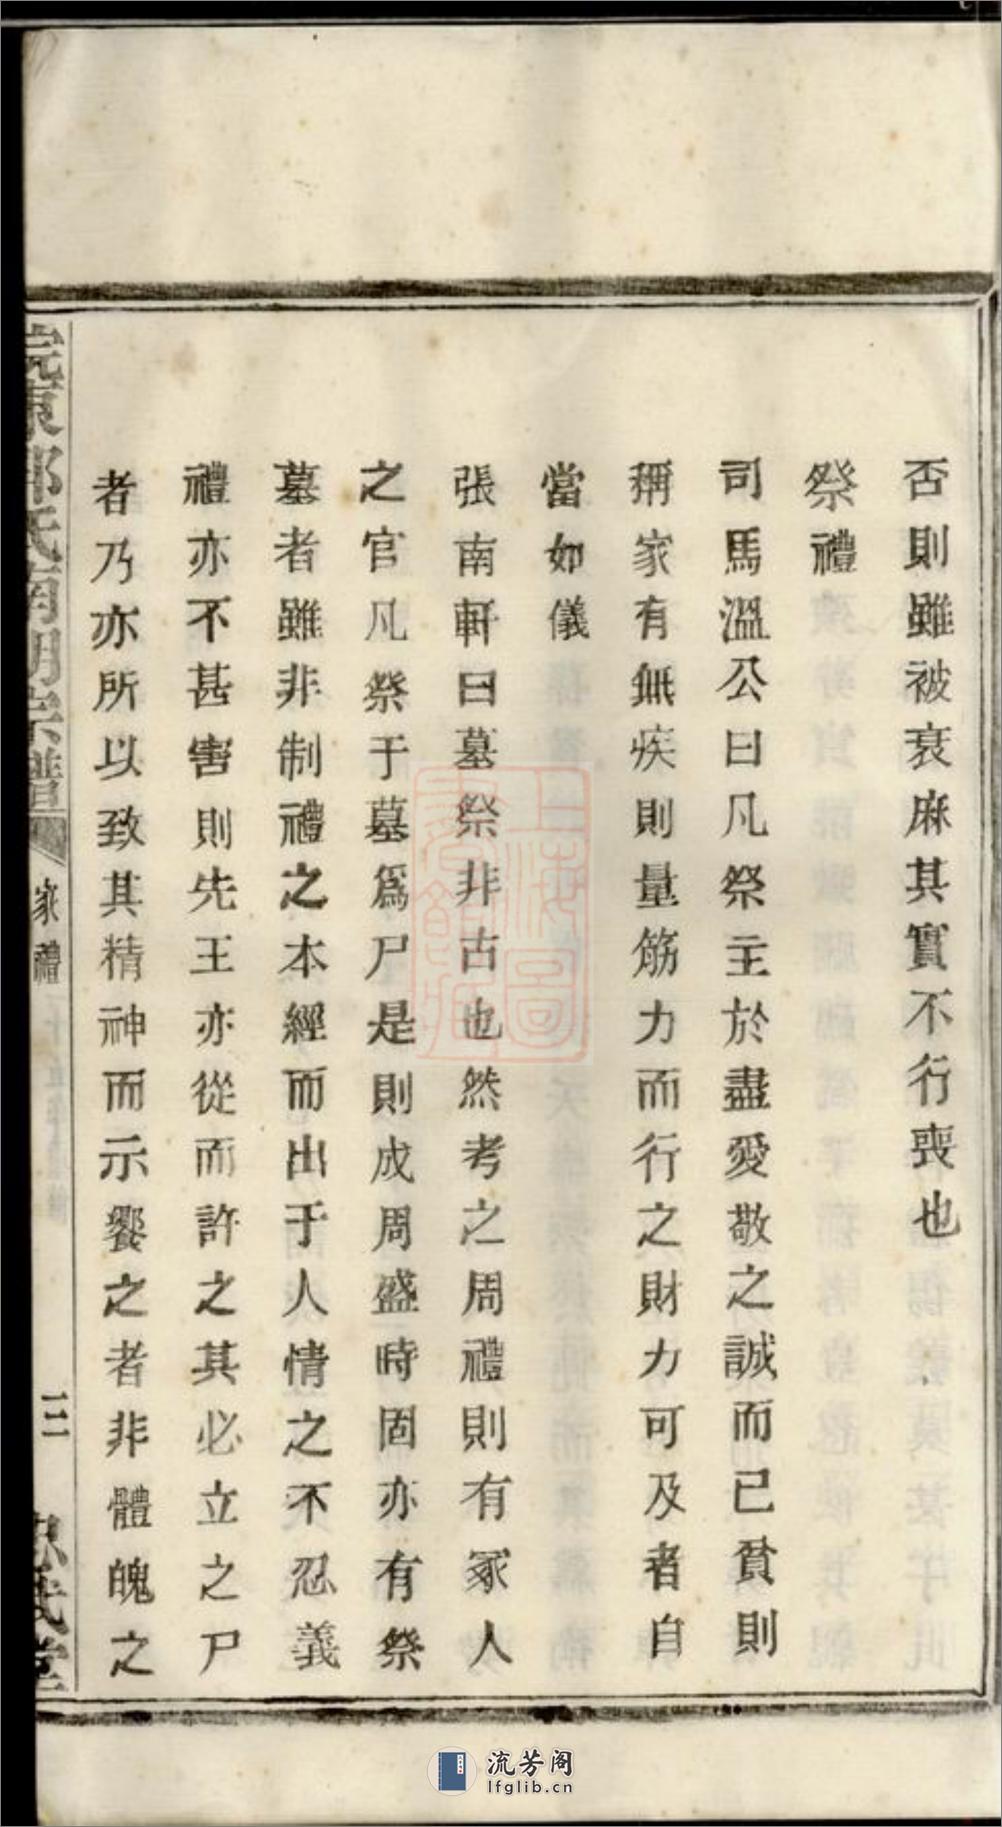 否則雖被衰麻其實不行喪也
祭禮
司馬溫公曰凡祭主於盡愛敬之誠而已貧則
稱家有無疾則量筋力而行之財力可及者自
當如儀
張南軒曰墓祭非古也然考之周禮則有冢人
之官凡祭于墓爲尸是則成周盛時固亦有祭
墓者雖非制禮之本經而出于人情之不忍義
禮亦不甚害則先王亦從而許之其必立之尸
者乃亦所以致其精神而示饗之者非體魄之
氏南湖宗譜
家禮
三
上海圖書館藏
流芳阁
lfglib.cn